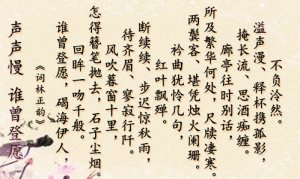 声声慢 谁曾登愿
《词林正韵》
谁曾登愿,碣海伊人,
回眸一吻千般。
怎得簪笔抛去,石子尘烟。
风吹暮窗十里,
待齐眉、寥寂行阡。
断续续、步迟惊秋雨,
红叶飘婵。
衿曲犹怜几句,
两鬓客、堪凭烛火阑珊。
所及繁华何处,尺牍凄寒。
廊亭往时别话,
掩长流、思酒痴缠。
滥声漫、释杯携孤影,
不负泠然。